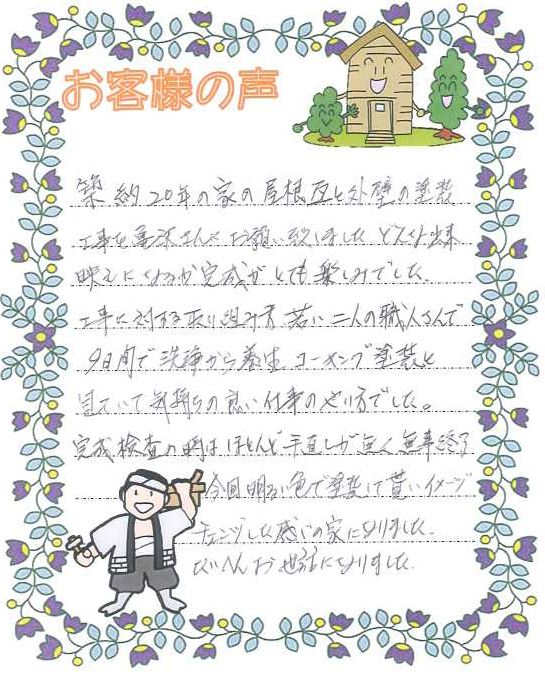 お客様の声
築約20年の家の屋根瓦と外壁の塗装
工事を さんにお願い致しました どんな出来
映えになるか完成がとても楽しみでした。
工事に対する取り組み方 若い二人の職人さんで
9日間で洗浄から養生 コーキング塗装と
見ていて気持ちの良い仕事のやり方でした。
完成検査の時はほとんど手直しが無く無事終了
今回明るい色で塗装して貰いイメージ
チェンジした感じの家になりました。
たいへんお世話になりました。